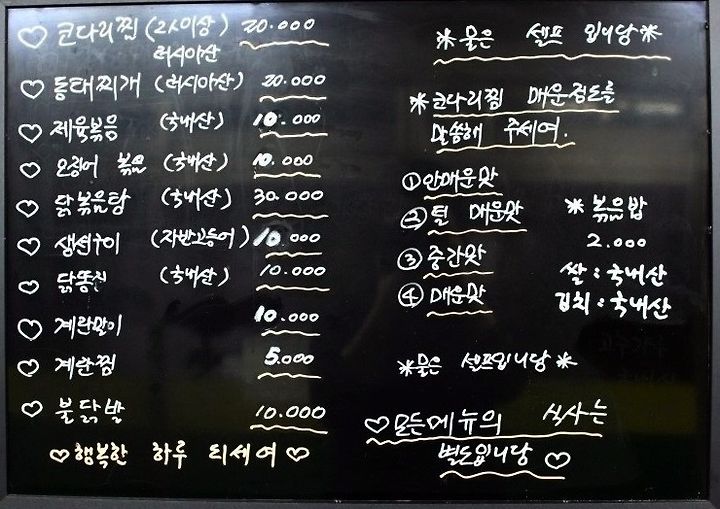 ♡ 코다리찜 (2人이상) 20.000
러시아산
♡ 동태찌개 (러시아산) 20.000
♡ 제육볶음 (국내산) 10.000
♡ 오징어 볶음 (국내산) 10.000
♡ 닭볶음탕 (국내산) 30.000
♡ 생선구이 (자반고등어) 10.000
♡ 닭똥집 (국내산) 10.000
♡ 계란말이 10.000
♡ 계란찜 5.000
♡ 불닭발 10.000
♡행복한 하루 되세여♡
*물은 셀프 입니당*
*코다리찜 매운정도를
말씀해 주세여.
①안매운맛
②덜 매운맛
③중간맛
④매운맛
*볶음밥
2.000
쌀:국내산
김치:국내산
*물은 셀프입니당*
♡모든메뉴의 식사는
별도입니당♡